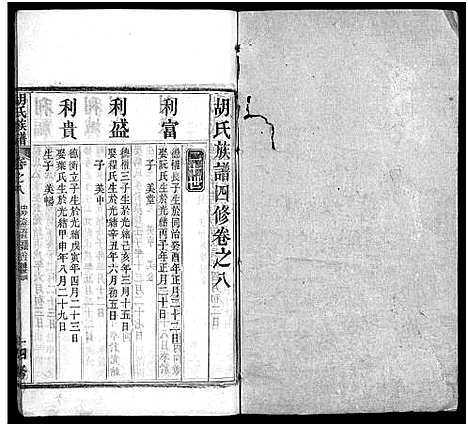 胡氏族譜四修卷之八
利富
德權長子生於同治癸酉年正月二十二日
娶阮氏生於光緒丙子年正月
子 美堂
利盛
德權三子生於光緒己亥年三月十五日
娶程氏生於光緒辛丑年六月初五日
子 美中
利貴
德衡立子生於光緒戊寅年四月二十三日
娶葉氏生於光緒甲申年八月二十九日
生子 美暢
胡氏族譜
卷之八